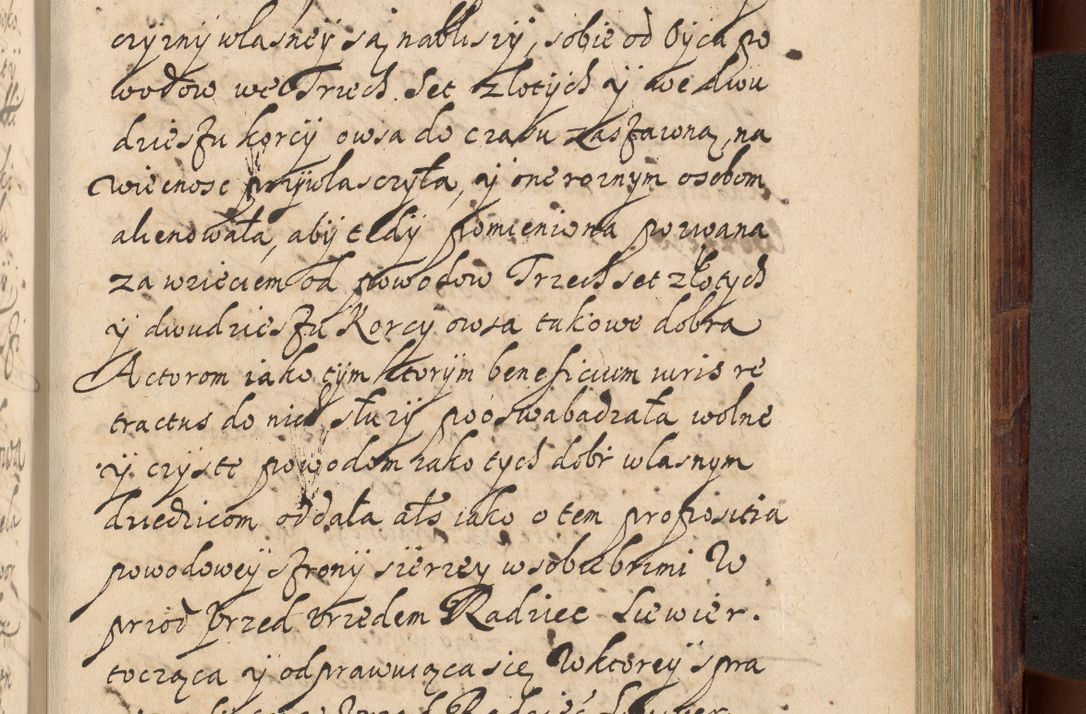 czyzny własney są nabliszy, sobie od Oyca po
wodow we Trzech Set złotych y we dwu
dziestu korcy owsa do czasu zastawną, na
wiecnosc przywlasczyła, y one roznym osobom
alienowała, aby tedy pomieniona pozwana
za wzieciem od powodow Trzech set złotych
y dwudziestu Korcy owsa takowe dobra
Actorom iako tym ktorym beneficium iuris re
tractus do nich słuzy pooswabadzała wolne
y czyste powodom iako tych dobr własnym
dziedzicom oddała als iako o tem propositia
powodowey strony sierzey w sobie brzmi W
przod przed Vrzedem Radziec Siewier.
tocząca y odprawuiąca się, W ktorey spra